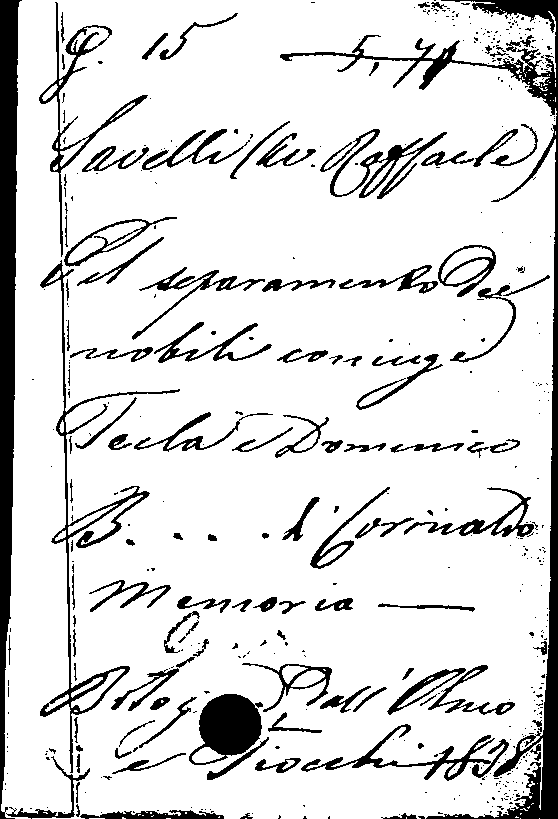 G. 15 5, 71
Savelli (Av. Raffaele)
Pel separamento dei
nobili coniugi
Tecla e Domenico
B. . . . di Corinaldo
Memoria —
Bolog Dall' Olmo
e Tiocchi 1838